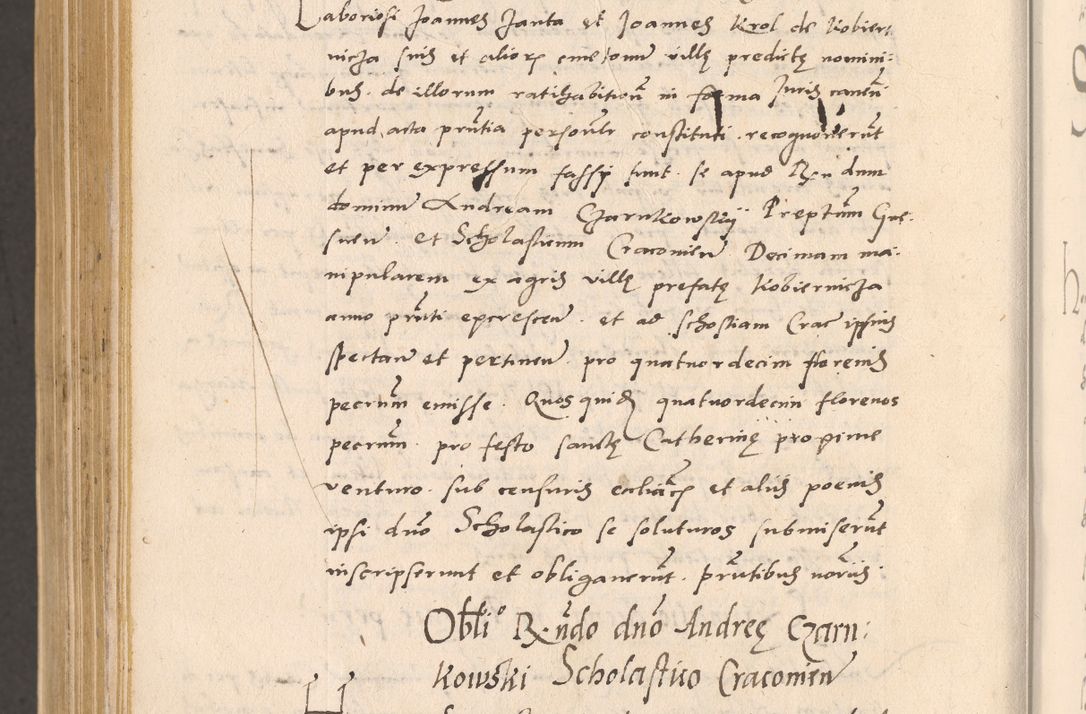 Laboriosi Joannes Janta et Joannes Krol de Kobier
nicza suis et alior cmetonu villę predictę nomini:
bus. de illorum ratihabitioñ in forma Juris canẽñ
apud acta pñtia personlr constituti. recognoverũt
et per expressum fassy sunt. se apud Rñ dum
dominu Andream Czarnkowskÿ Preptũm Gne:
sneñ. et Scholasticum Cracovieñ Decimam ma:
nipularem ex agris villę prefatę Kobiernicza
anno pñti excresceñ. et ad schostiam Crac ipsius
spectañ et pertineñ. pro quatuordecim florenis
pecuñ emisse. Quos quid quatuordecim florenos
pecuñ. pro festo sanctę Catherinę proxime
venturo. sub censuris ecclicis et aliis poenis
ipsi dño Scholastico se soluturos submiserũt
inscripserunt et obliganerũt. pñtibus
Obllõ Rñdo dño Andreę Czarn:
kowski Scholastico Cracovieñ